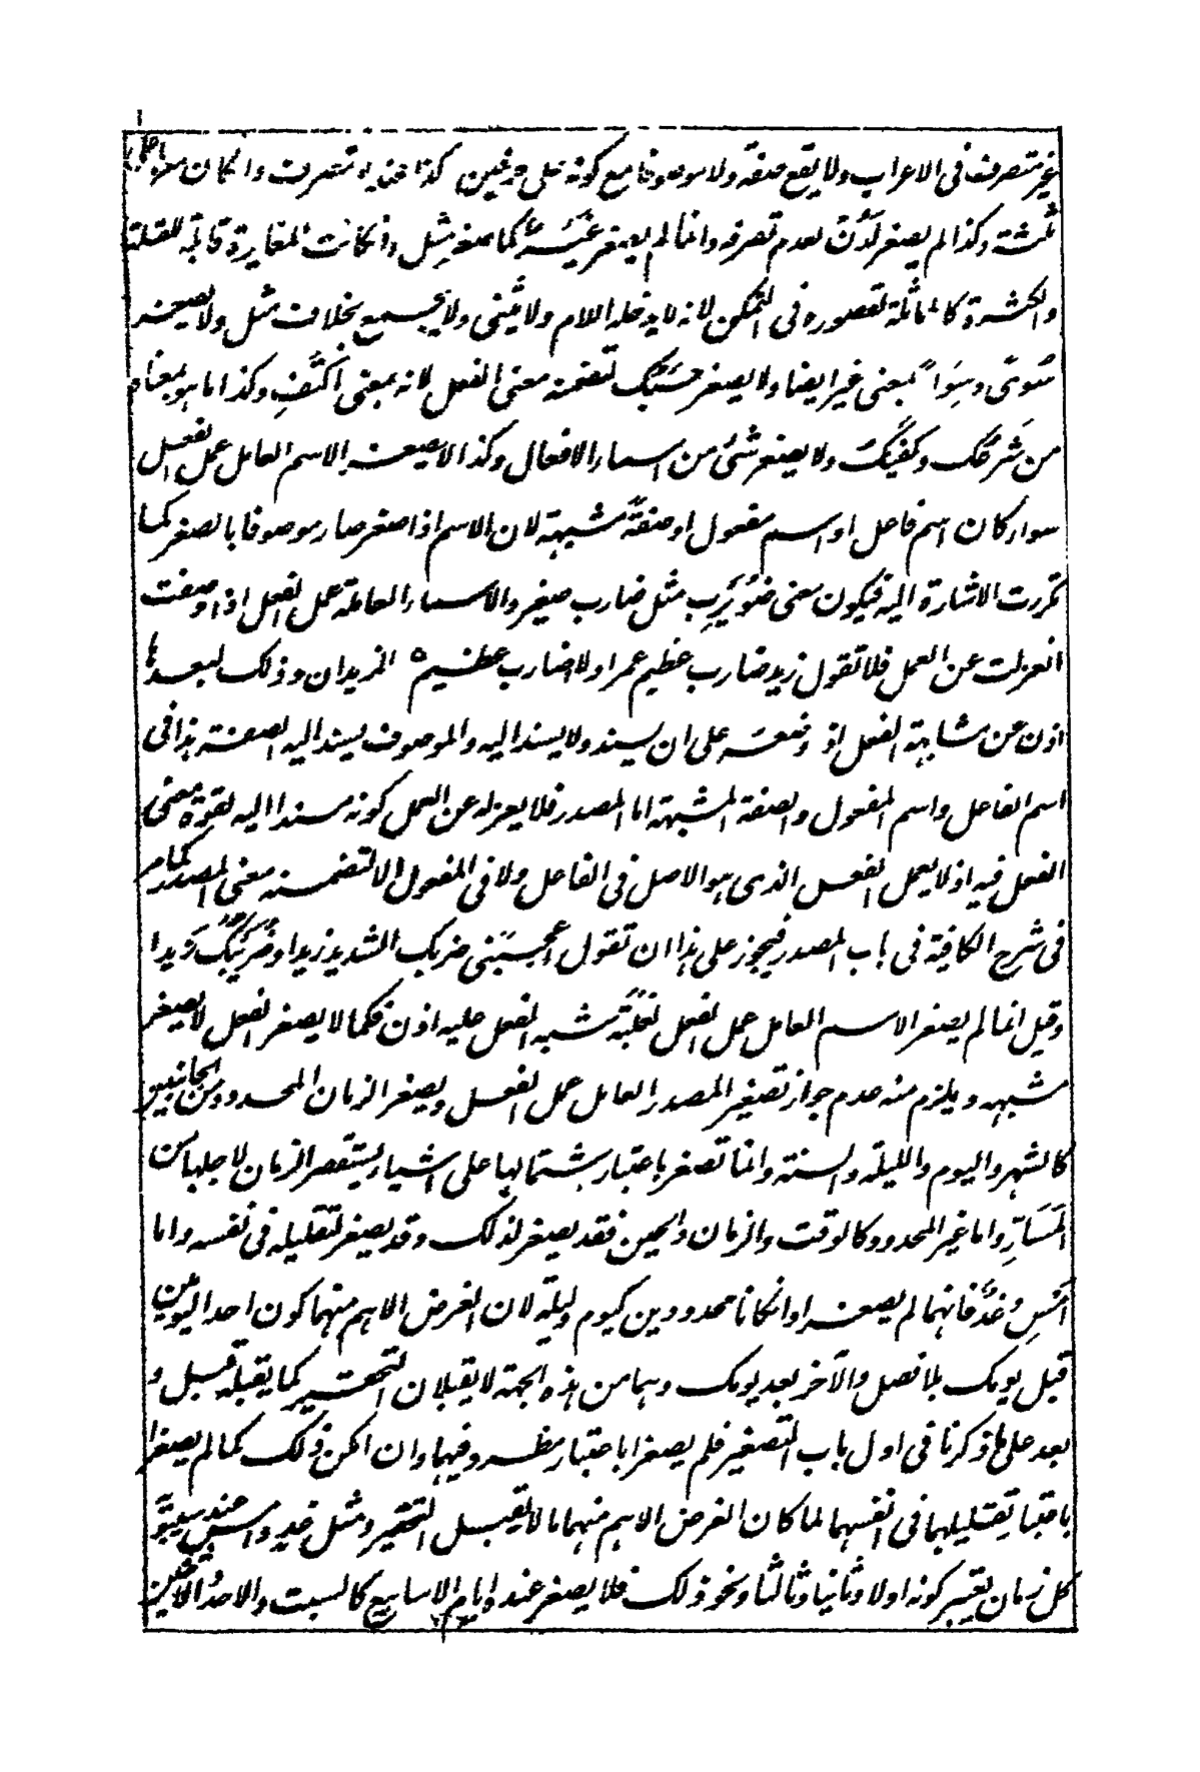 غير متصرف فى الاعراب ولا يقع صفة ولا موصوفا مع كونه على حرفين كذا عند متصرف وانكان معرى
ثمت وكذا لم يصغر لدن لعدم تصرفه وانما لم يصغر غير كما صغر مثل وانكانت المغايرة قابلة للقلة
والكثرة كالمماثلة لقصوره فى التمكن لانه لا يدخله اللام ولا يثنى ولا يجمع بخلاف مثل ولا يصغر
سُوىً وسِوَاءً بمعنى غير ايضا ولا يصغر حسبك لتضمنه معنى الفعل لانه بمعنى اكتفِ وكذا ما هو بمعناه
من شرعك وكفيك ولا يصغر شئ من اسماء الافعال وكذا لا يصغر الاسم العامل عمل الفعل
سواء كان اسم فاعل او اسم مفعول او صفةً مشبهة لان الاسم اذا صغر صار موصوفا بالصغر كما
تكررت الاشارة اليه فيكون معنى ضُوَيرِب مثل ضارب صغير والاسماء العاملة عمل الفعل اذا وصفت
انعزلت عن العمل فلا تقول زيد ضارب عظيم عمرا ولا اضارب عظيم الزيدان وذلك لبعدها
اذن عن مشابهة الفعل اذ وضعه على ان يسند ولا يسند اليه والموصوف يسند اليه الصفة هذا فى
اسم الفاعل واسم المفعول والصفة المشبهة اما المصدر فلا يعزله عن العمل كونه مسندا اليه لقوة معنى
الفعل فيه اذ لا يعمل الفعل الذى هو الاصل فى الفاعل ولا فى المفعول الا لتضمنه معنى المصدر كما مر
فى شرح الكافية فى باب المصدر فيجوز على هذا ان تقول اعجبنى ضربك الشديد زيدا وضُرَيبُك زيدا
وقيل انما لم يصغر الاسم العامل عمل الفعل لغلبة شبه الفعل عليه اذن فكما لا يصغر الفعل لا يصغر
مشبهه ويلزم منه عدم جواز تصغير المصدر العامل عمل الفعل ويصغر الزمان المحدود من الجانبين
كالشهر واليوم والليلة والسنة وانما تصغر باعتبار اشتمالها على اشياء يستقصر الزمان لاجلها من
المَسَارِّ واما غير المحدود كالوقت والزمان والحين فقد يصغر لذلك وقد يصغر لتقليله فى نفسه واما
اَمسِ وغد فانهما لم يصغرا وانكانا محدودين كيوم وليلة لان الغرض الاهم منهما كون احد اليومين
قبل يومك بلا فصل والآخر بعد يومك وهما من هذه الجهة لا يقبلان التحقير كما يقبله قبل و
بعد على ما ذكرنا فى اول باب التصغير فلم يصغرا باعتبار مظروفيهما وان امكن ذلك كما لم يصغرا
باعتبار تقليلهما فى انفسهما لما كان الغرض الاهم منهما ما لا يقبل التحقير ومثل غد وامس عند سيبويه
كل زمان يعتبر كونه اولا وثانيا وثالثا ونحو ذلك فلا يصغر عنده ايام الاسابيع كالسبت والاحد والاثنين